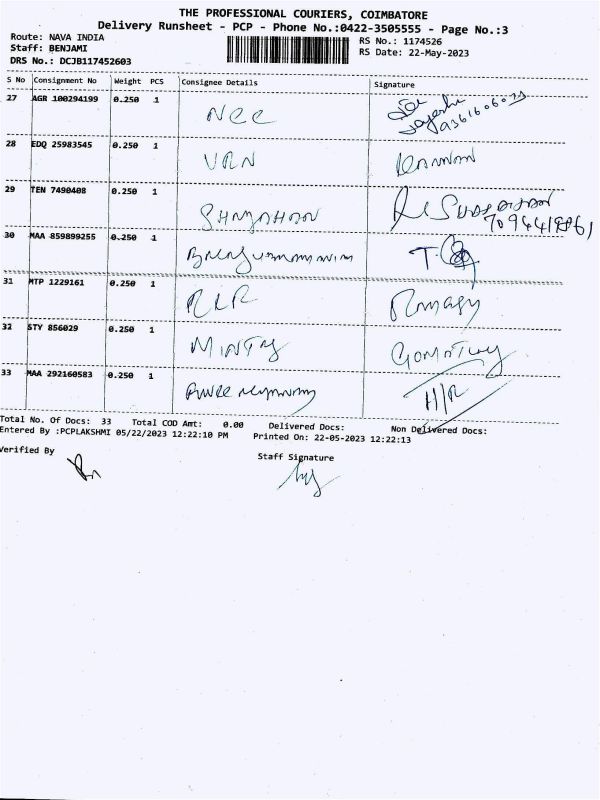 THE PROFESSIONAL COURIERS, COIMBATORE
Delivery Runsheet - PCP - Phone No.:0422-3505555 - Page No.:3
Route: NAVA INDIA
Staff: BENJAMI
DRS No.: DCJB117452603
RS No.: 1174526
RS Date: 22-May-2023
S No Consignment No Weight PCS Consignee Details Signature
27 AGR 100294199 0.250 1 NCC
28 EDQ 25983545 0.250 1 VRN KANNAN
29 TEN 7490408 0.250 1 SHAJAHAN
30 MAA 859899255 0.250 1
31 MTP 1229161 0.250 1 RLR
32 STY 856029 0.250 1
33 MAA 292160583 0.250 1 H/R
Total No. Of Docs: 33 Total COD Amt: 0.00 Delivered Docs: Non Delivered Docs:
Entered By :PCPLAKSHMI 05/22/2023 12:22:10 PM Printed On: 22-05-2023 12:22:13
Verified By
Staff Signature